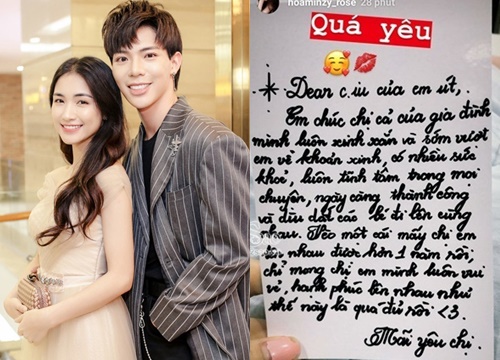 hoaminzy_rose 28 phút
Quá yêu
Dear c.iu của em út,
Em chúc chị cả của gia đình
mình luôn xinh xắn và sớm vượt
em về khoản xinh, có nhiều sức
khoẻ, luôn tỉnh táo trong mọi
chuyện, ngày càng thành công
và dìu dắt các bé đi lên cùng
nhau. Vèo một cái mấy chị em
bên nhau được hơn 1 năm rồi,
chỉ mong chị em mình luôn vui
vẻ, hạnh phúc bên nhau như
thế này là quá đủ rồi <3.
Mãi yêu chị.